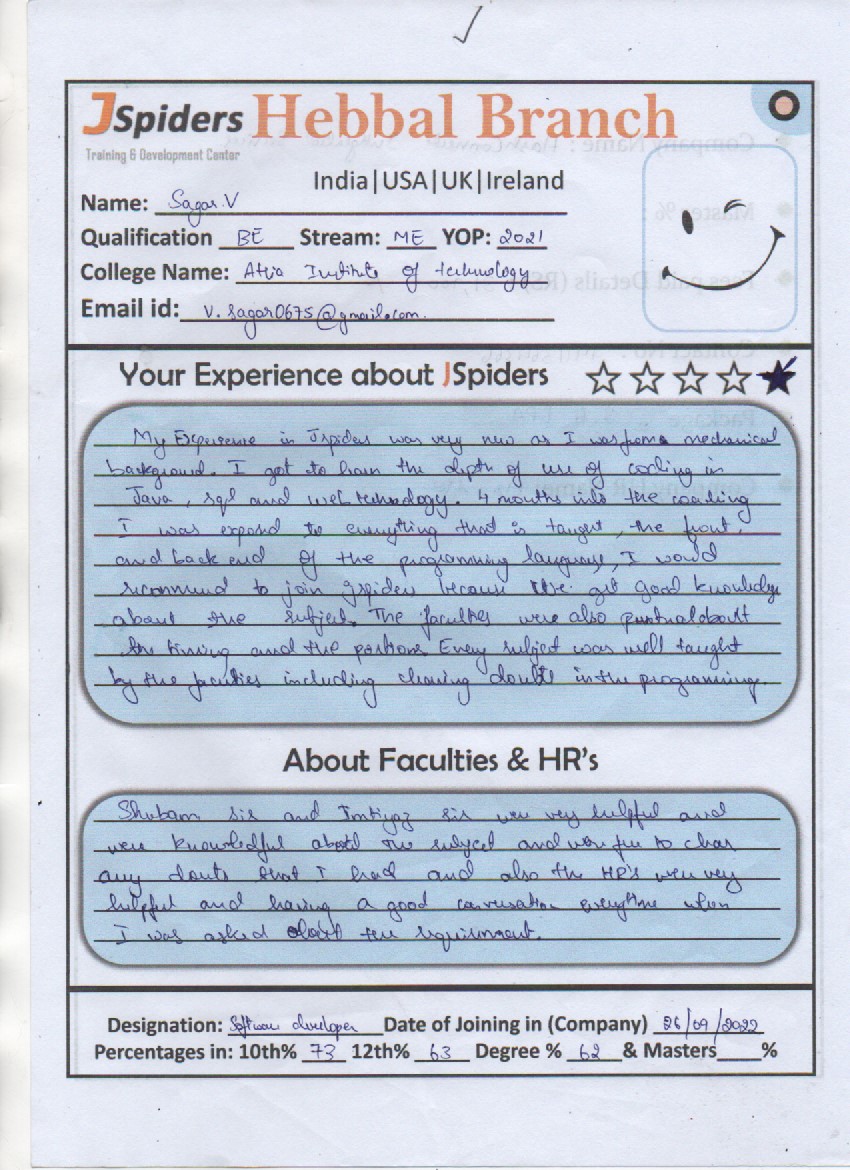 JSpiders Hebbal Branch
Training & Development Center
India|USA|UK|Ireland
Name: Sagar.V
Qualification BE Stream: ME YOP: 2021
College Name: Atria Institute of technology
Email id: v.sagar0675@gmail.com.
Your Experience about JSpiders
My Experience in Jspiders was very new as I was from a mechanical
background. I got to learn the depth of use of coding in
Java, sql and web technology. 4 months into the coaching
I was expond to everything that is taught, the front,
and back end of the programming language, I would
recommend to join jspiders because the get good knowledge
about the subject. The faculties were also puntual about
the timing and the portions Every subject was well taught
by the faculties including clearing doubts in the programming.
About Faculties & HR's
Shubam sir and Imtiyaz sir were very helpful and
were knowledful about the subject and were free to clear
any douts that I had and also the HR's were very
helpful and having a good conversation everytime when
I was asked about the requirement.
Designation: Software developer Date of Joining in (Company) 26/09/2022
Percentages in: 10th% 73 12th% 63 Degree % 62 & Masters %